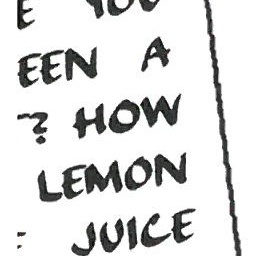 YOU
EEN A
? HOW
LEMON
JUICE